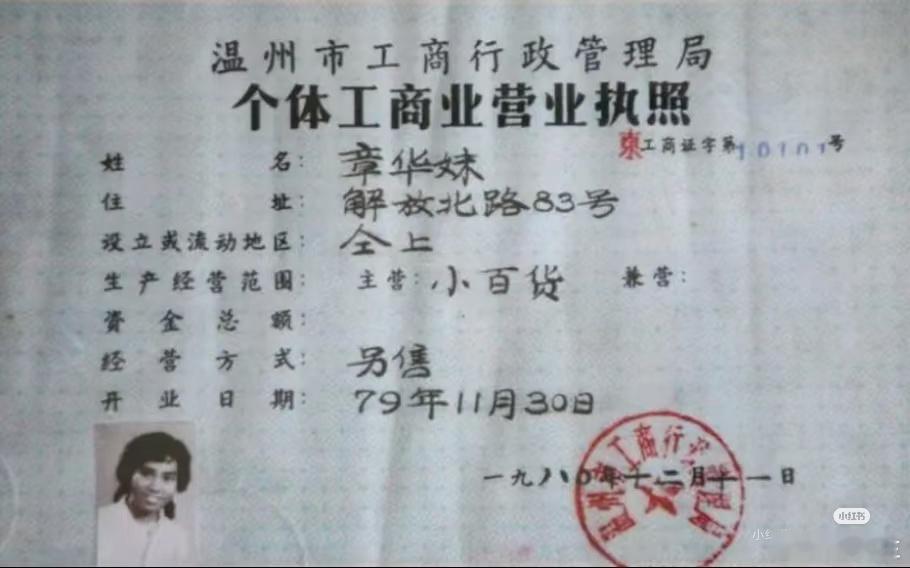 温州市工商行政管理局
个体工商业营业执照
東工商证字第10101号
姓名：章华妹
住址：解放北路83号
设立或流动地区：仝上
生产经营范围：主营：小百货 兼营：
资金总额：
经营方式：另售
开业日期：79年11月30日
一九八〇年十二月十一日
温州市工商行政管理局
小红书